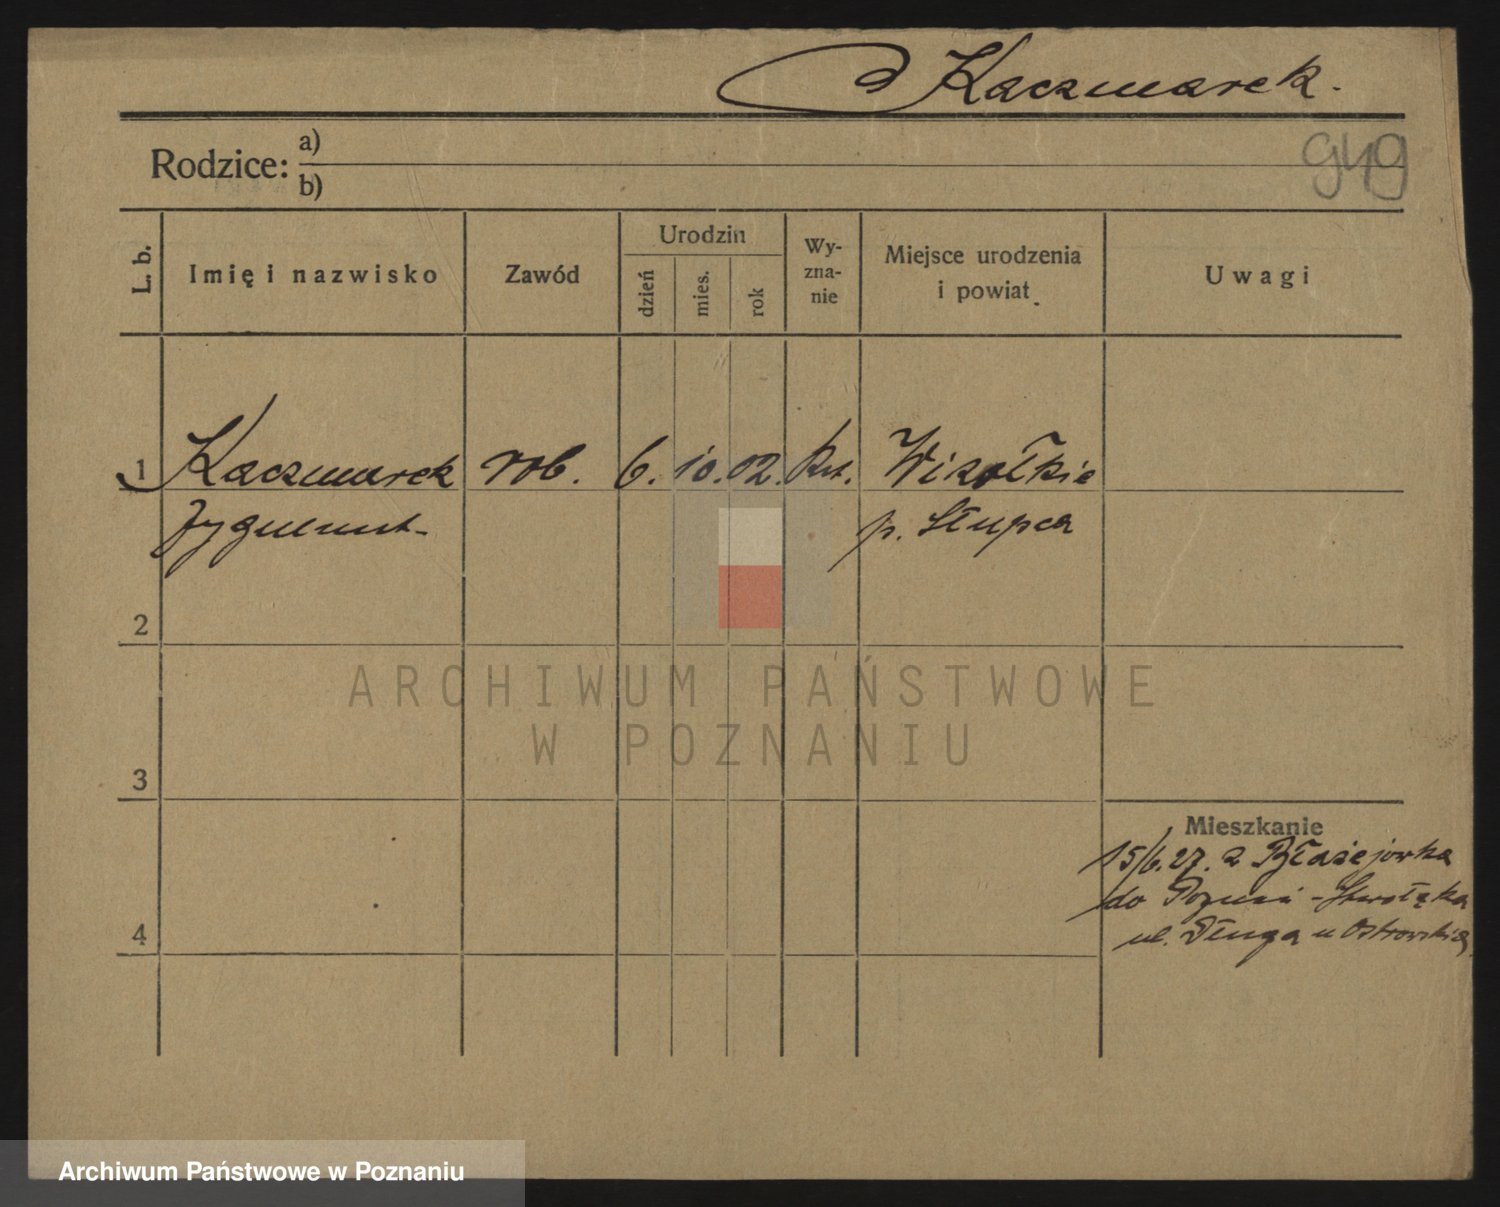 Kaczmarek.
949
Rodzice: a)
b)
L. b.
Imię i nazwisko
Zawód
Urodzin
dzień
mies.
rok
Wy-
zna-
nie
Miejsce urodzenia
i powiat
Uwagi
1 Kaczmarek rob. 6. 10. 02. Kat.
Zygmunt p. Słupca
2
3
4
Mieszkanie
15/6.27. z Błażejewka
do
ul. Długa u
ARCHIWUM PAŃSTWOWE
W POZNANIU
Archiwum Państwowe w Poznaniu